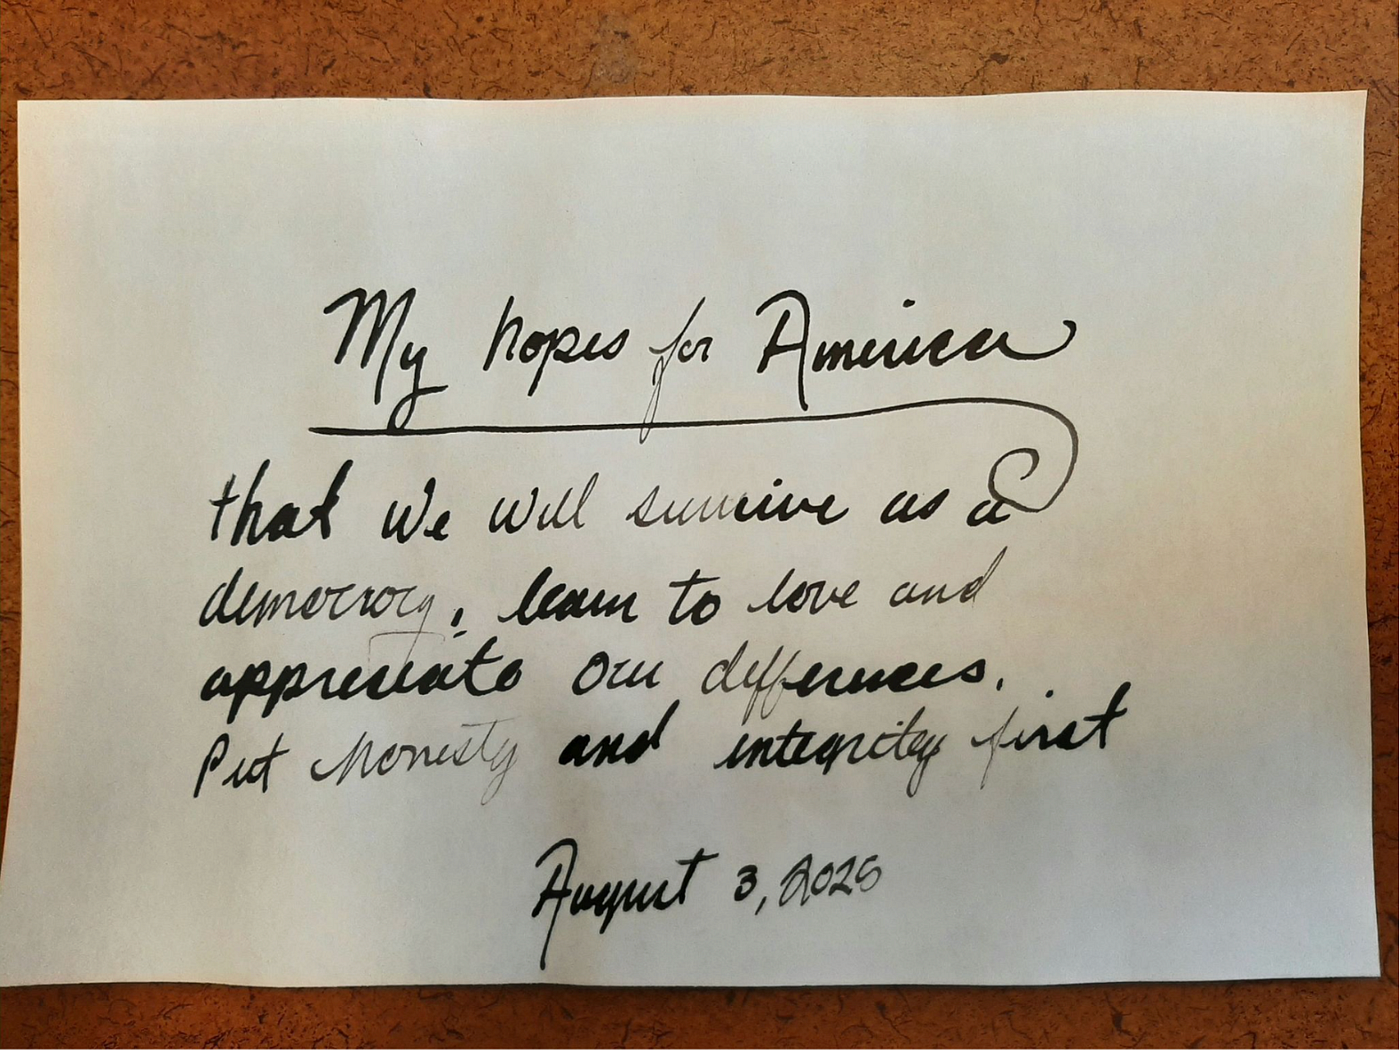 My hopes for America
that we will survive as a
democracy, learn to love and
appreciate our differences.
Put honesty and integrity first
August 3, 2025